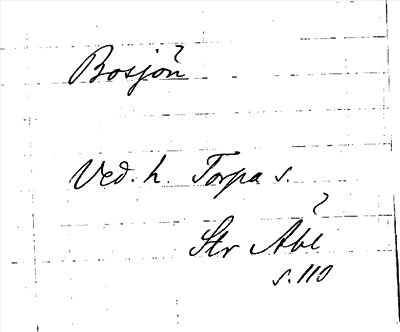 Bosjön
Ved. h. Torpa s.
?
Str Abl
s. 110